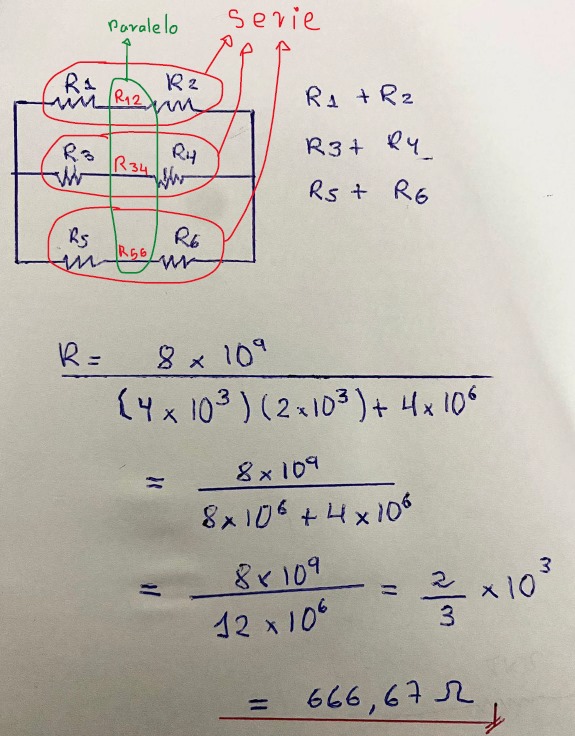 paralelo
serie
R1 R12 R2
R3 R34 R4
R5 R56 R6
R1 + R2
R3 + R4
R5 + R6
R = 8 x 10⁹
(4 x 10³) (2 x 10³) + 4 x 10⁶
= 8 x 10⁹
8 x 10⁶ + 4 x 10⁶
= 8 x 10⁹ = 2 x 10³
12 x 10⁶ 3
= 666,67 Ω